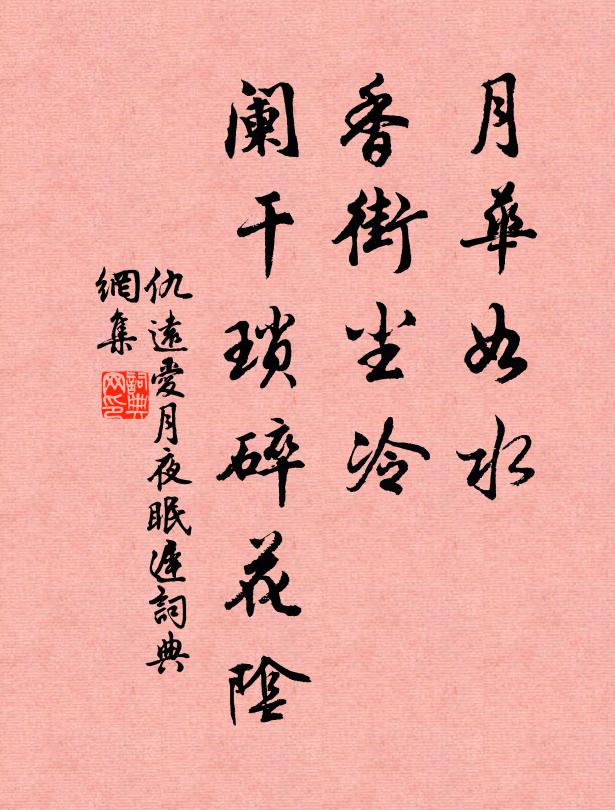 月華如水
香街尘冷
阑干琐碎花陰
仇遠愛月夜眠遲詞典
網集
詞典
网印